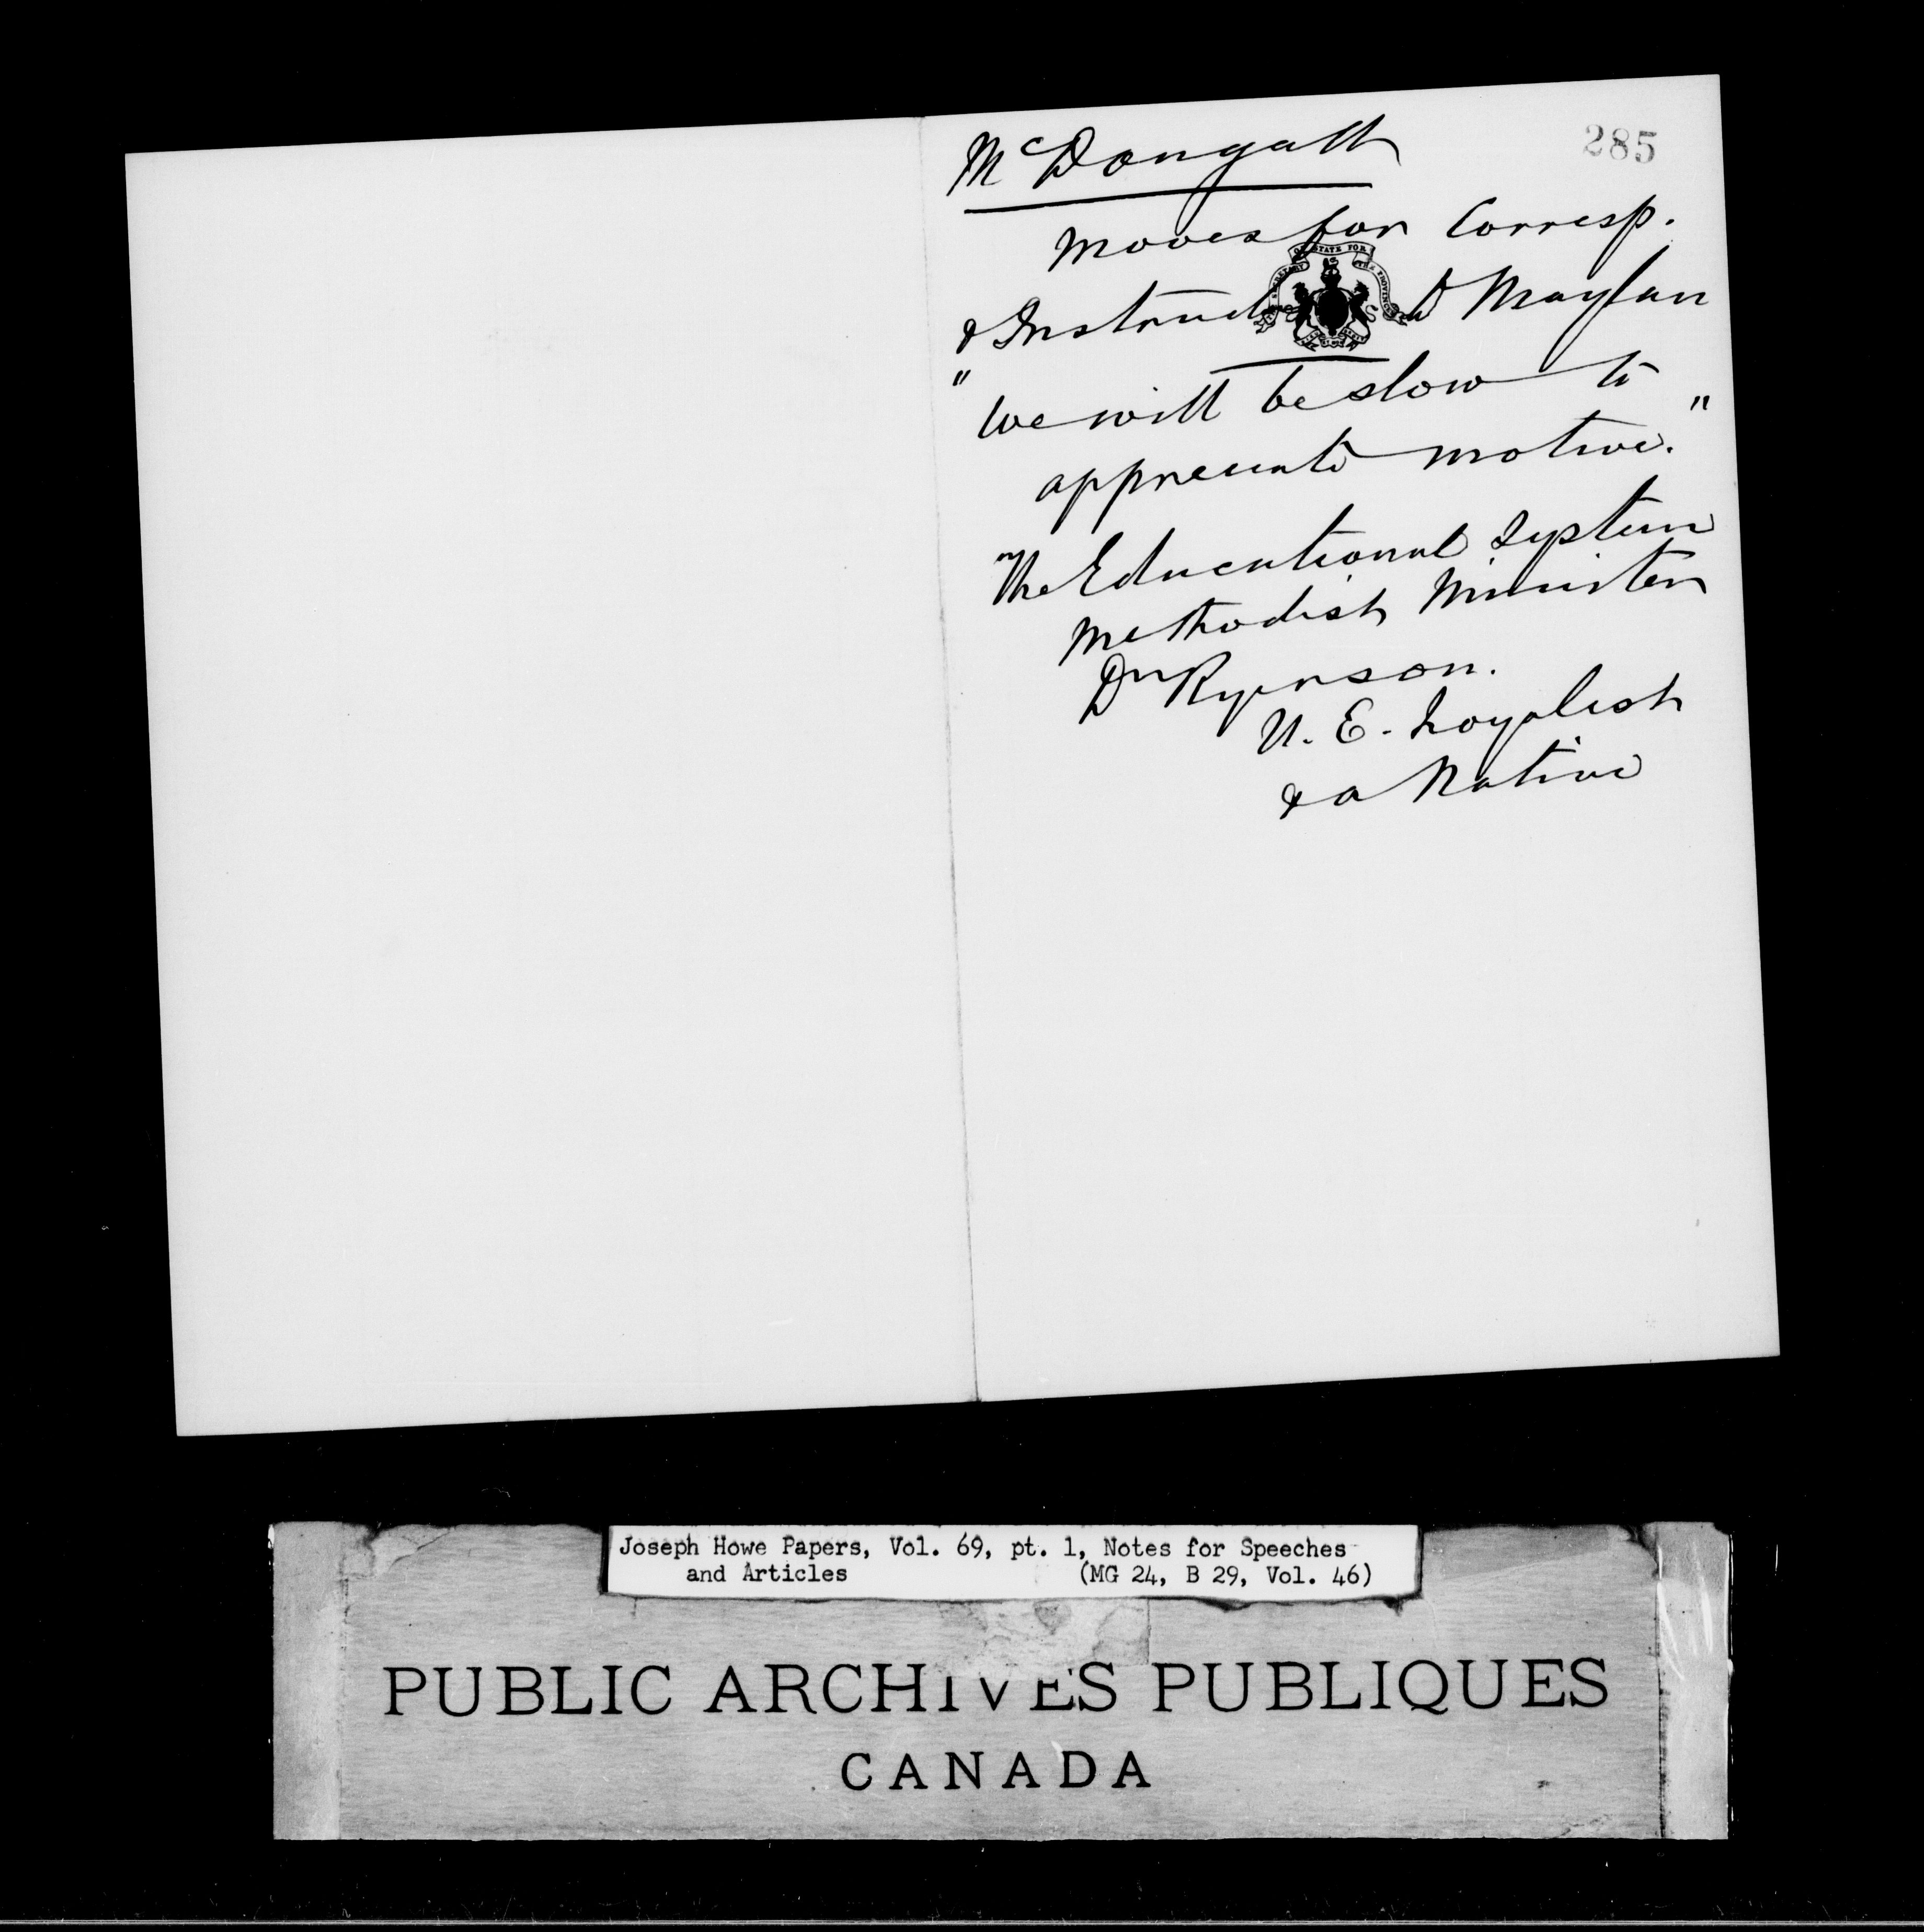 285
McDougall
Moves for Corresp.
& Instruct to Moylan
"We will be slow to
appreciate motive."
The Educational System
Methodist Minister
Dr Ryerson.
U. E. Loyalist
& a Native
Joseph Howe Papers, Vol. 69, pt. 1, Notes for Speeches
and Articles (MG 24, B 29, Vol. 46)
PUBLIC ARCHIVES PUBLIQUES
CANADA